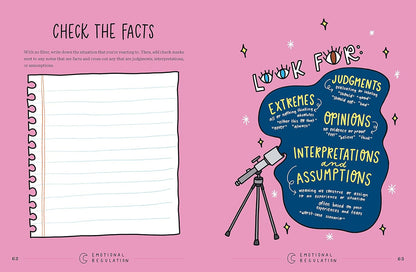 CHECK THE FACTS
With no filter, write down the situation that you're reacting to. Then, add check marks
next to any notes that are facts and cross out any that are judgments, interpretations,
or assumptions.
62
EMOTIONAL
REGULATION
LOOK FOR:
JUDGMENTS
evaluating or shaming
"should" "good"
"should not" "bad"
EXTREMES
all or nothing thinking
absolutes
"either this or that"
"never" "always"
OPINIONS
no evidence or proof
"feel" "believe" "think"
INTERPRETATIONS
and
ASSUMPTIONS
meaning we construe or assign
to an experience or situation
often based on your
experiences and fears
"worst-case scenario"
EMOTIONAL
REGULATION
63